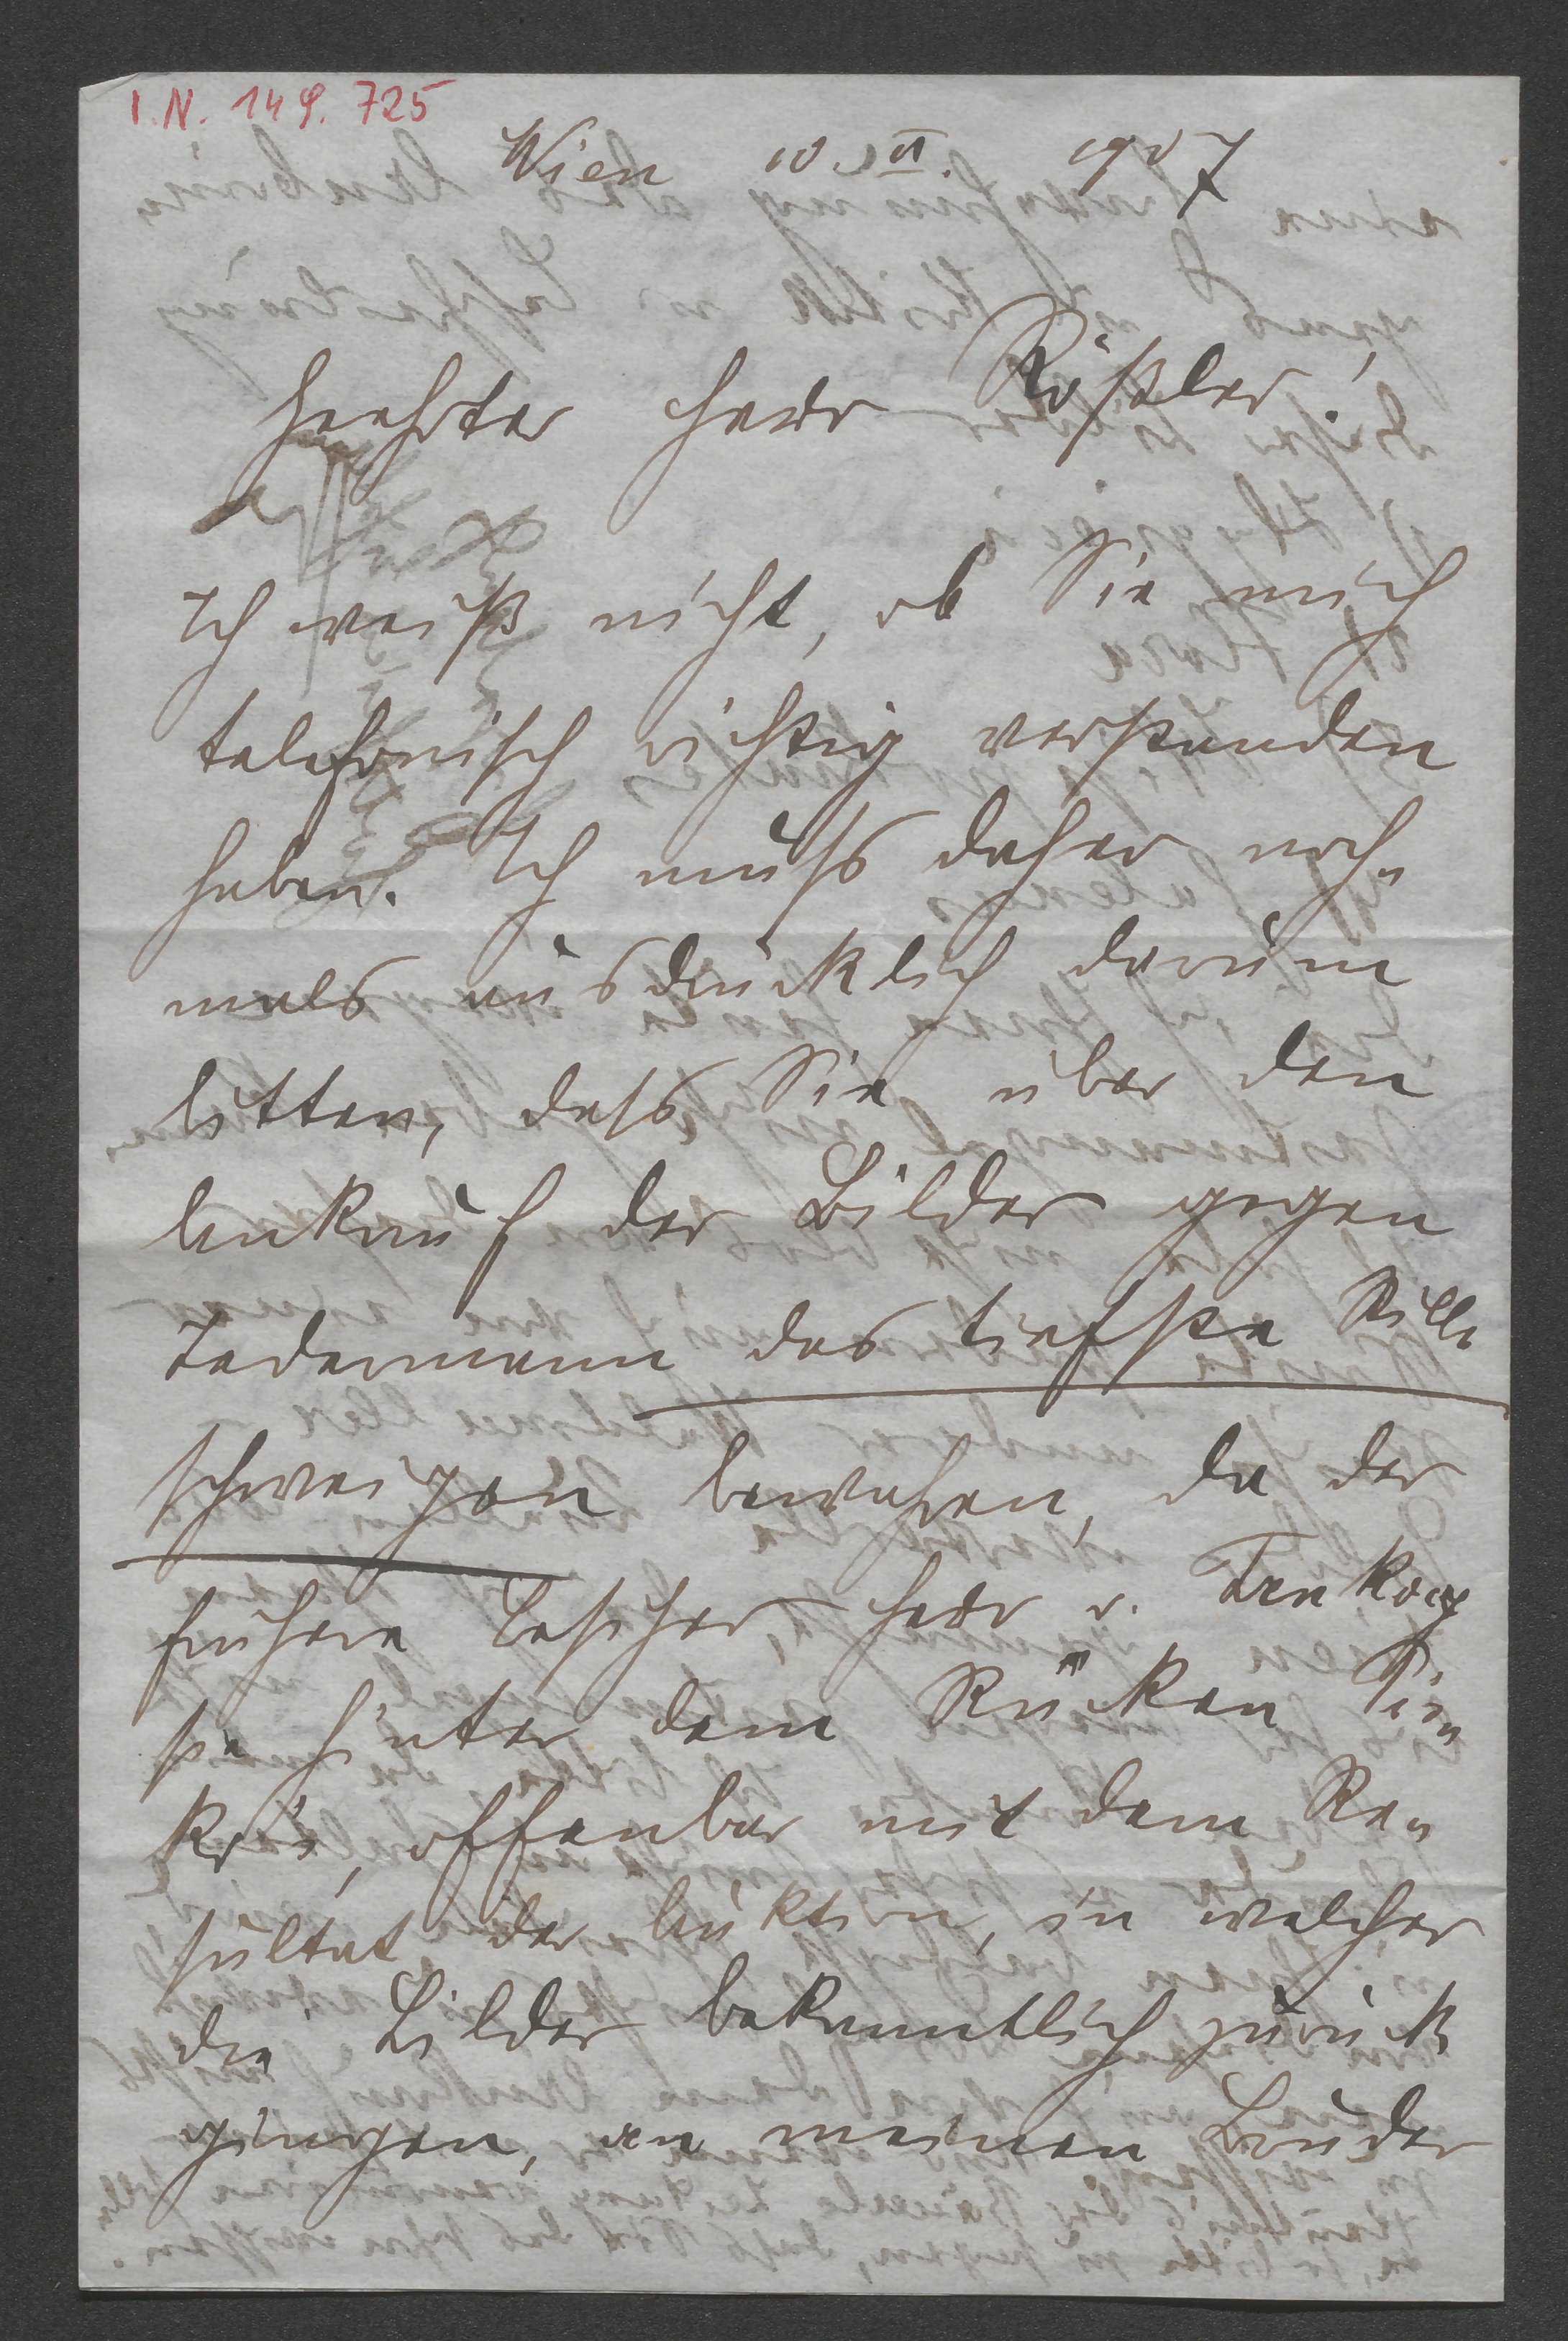 I.N. 149.725
Wien 10. VI. 1907
Geehrter Herr Rößler!
Ich weiß nicht, ob Sie mich
telefonisch richtig verstanden
haben. Ich muss daher noch-
mals ausdrücklich darum
bitten, dass Sie über den
Ankauf der Bilder gegen
Jedermann das tiefste Still-
schweigen bewahren, da der
frühere Besitzer Herr v.
sie hinter dem Rücken
offenbar mit dem Re-
sultat der Auktion, in welcher
die Bilder bekanntlich zurück
gingen, an meinen Bruder